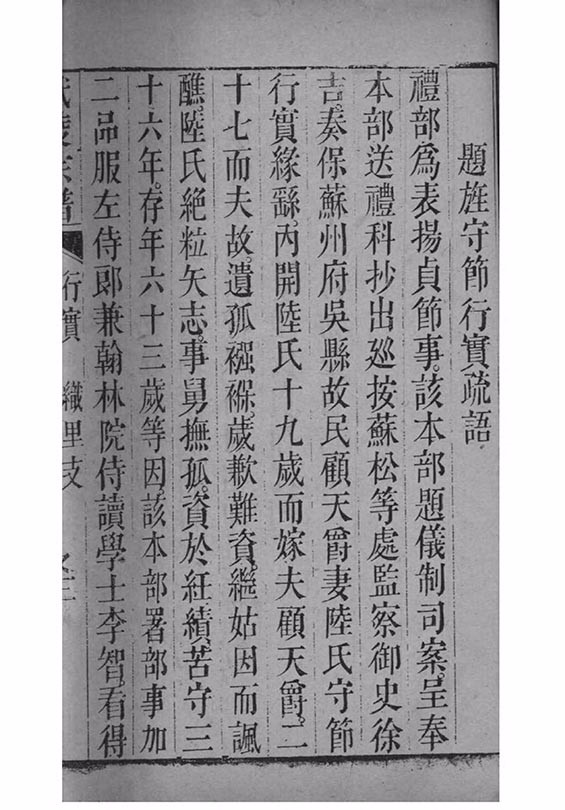 題旌守節行實疏語
禮部爲表揚貞節事。該本部題儀制司案。呈奉
本部送禮科抄出廵按蘇松等處監察御史徐
吉。奏保蘇州府吳縣故民顧天爵妻陸氏守節
行實緣繇。內開陸氏十九歲而嫁夫顧天爵。二
十七而夫故。遺孤襁褓。歲歉難資。繼姑因而諷
醮。陸氏絕粒矢志。事舅撫孤。資於紅績。苦守三
十六年。存年六十三歲等因。該本部署部事加
二品服左侍郎兼翰林院侍讀學士李智。看得
行實 織里支